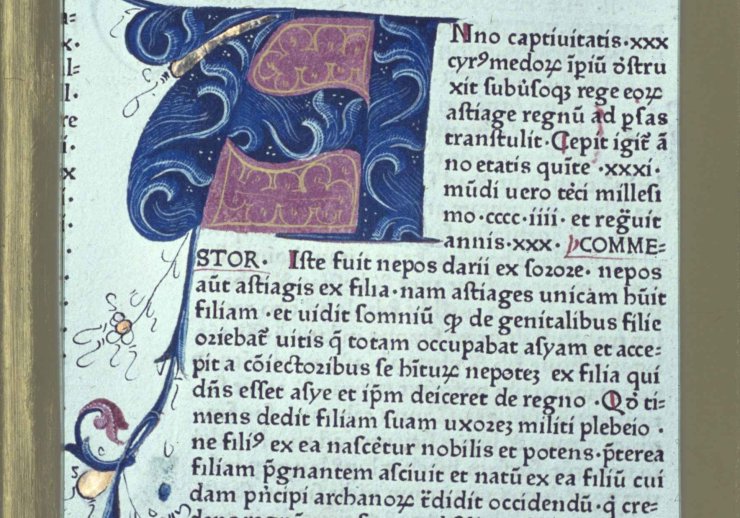 ANno captiuitatis·xxx
cyrꝰmedoꝝ īꝑiū ꝺstru
xit subuͤsoqꝫ rege eoꝝ
astiage regnū ad ꝑsas
transtulit·Cepit igit᷑ ā
no etatis quīte ·xxxi·
mūdi uero tēci millesi
mo·cccc·iiii· et reg̃uit
annis·xxx· COMME=
STOR· Iste fuit nepos darii ex sorore· nepos
aūt astiagis ex filia·nam astiages unicam hūit
filiam ·et uidit somniū ꝙ de genitalibus filie
oriebat᷑ uitis q̄ totam occupabat asyam et acce-
pit a cōiectoribus se hīturꝝ nepoteꝫ ex filia qui
dn̄s esset asye et ip̄m deiceret de regno ·Qꝺ̓ ti-
mens dedit filiam suam uxoreꝫ militi plebeio ·
ne filiꝰ ex ea nascēt̓ur nobilis et potens·p̄terea
filiam p̄gnantem asciuit et natū ex ea filiū cui
dam pn̄cipi archanoꝝ t᷑didit occidendū·q̓ cre-